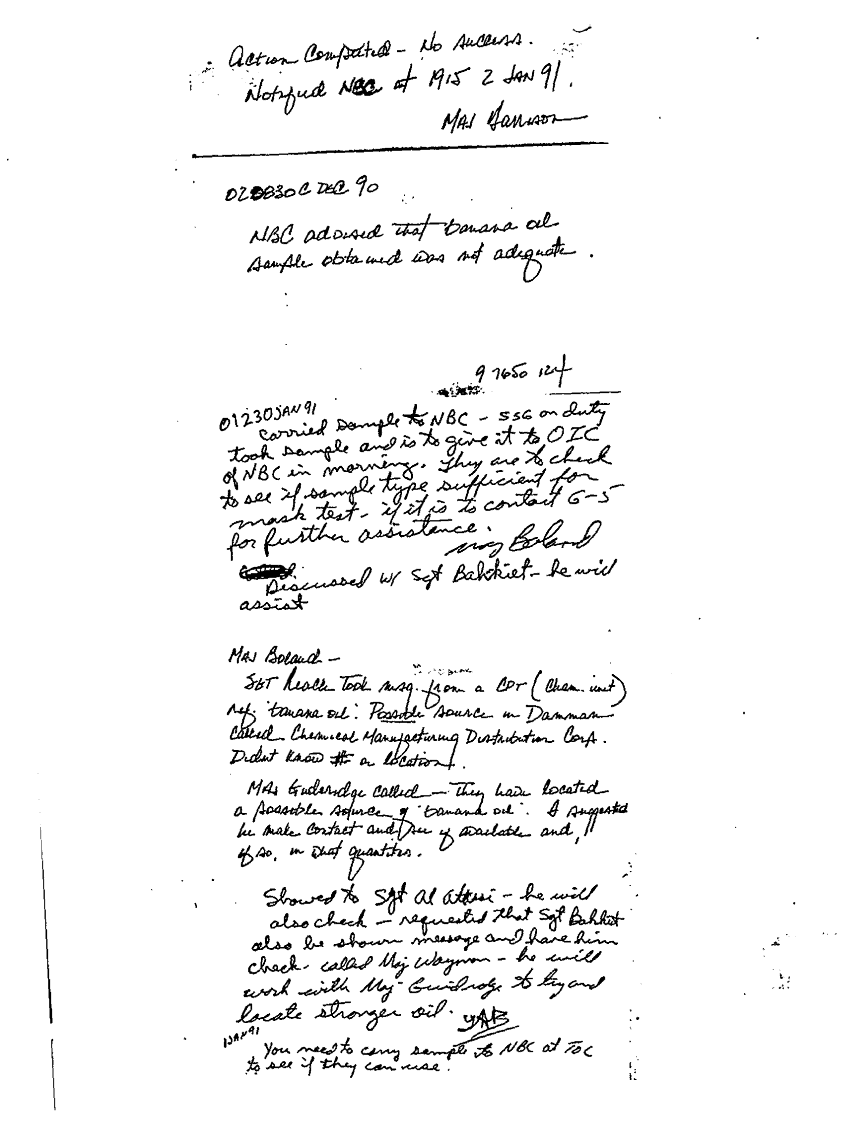 Action Completed - No success.
Notified NBC at 1915 2 JAN 91.
MAJ Garrison
020830C DEC 90
NBC advised that banana oil
sample obtained was not adequate.
9 7650 124
01230 JAN 91
Carried sample to NBC - SSG on duty
took sample and is to give it to OIC
of NBC in morning. They are to check
to see if sample type sufficient for
mask test - if it is to contact G-5
for further assistance.
Maj Boland
Discussed w/ Sgt Bahkiet - he will
assist
MAJ Boland -
SGT Took msg. from a CPT (Chem. unit)
ref. 'banana oil'. Possible source in Dammam
called Chemical Manufacturing Distribution Corp.
Didn't know # or location.
MAJ Guideridge called - They have located
a possible source of 'banana oil'. I suggested
he make contact and see if available and,
if so, in what quantites.
Showed to Sgt Al - he will
also check - requested that Sgt Bahkiet
also be shown message and have him
check - called Maj Waymon - he will
work with Maj Guidridge to try and
locate stronger oil. YAB
1 JAN 91
You need to carry sample to NBC at TOC
to see if they can use.